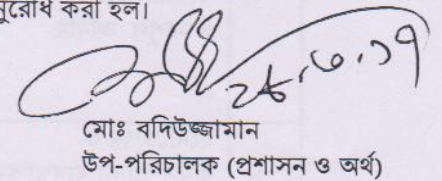 নুরোধ করা হল।
২৮.৬.১৭
মোঃ বদিউজ্জামান
উপ-পরিচালক (প্রশাসন ও অর্থ)